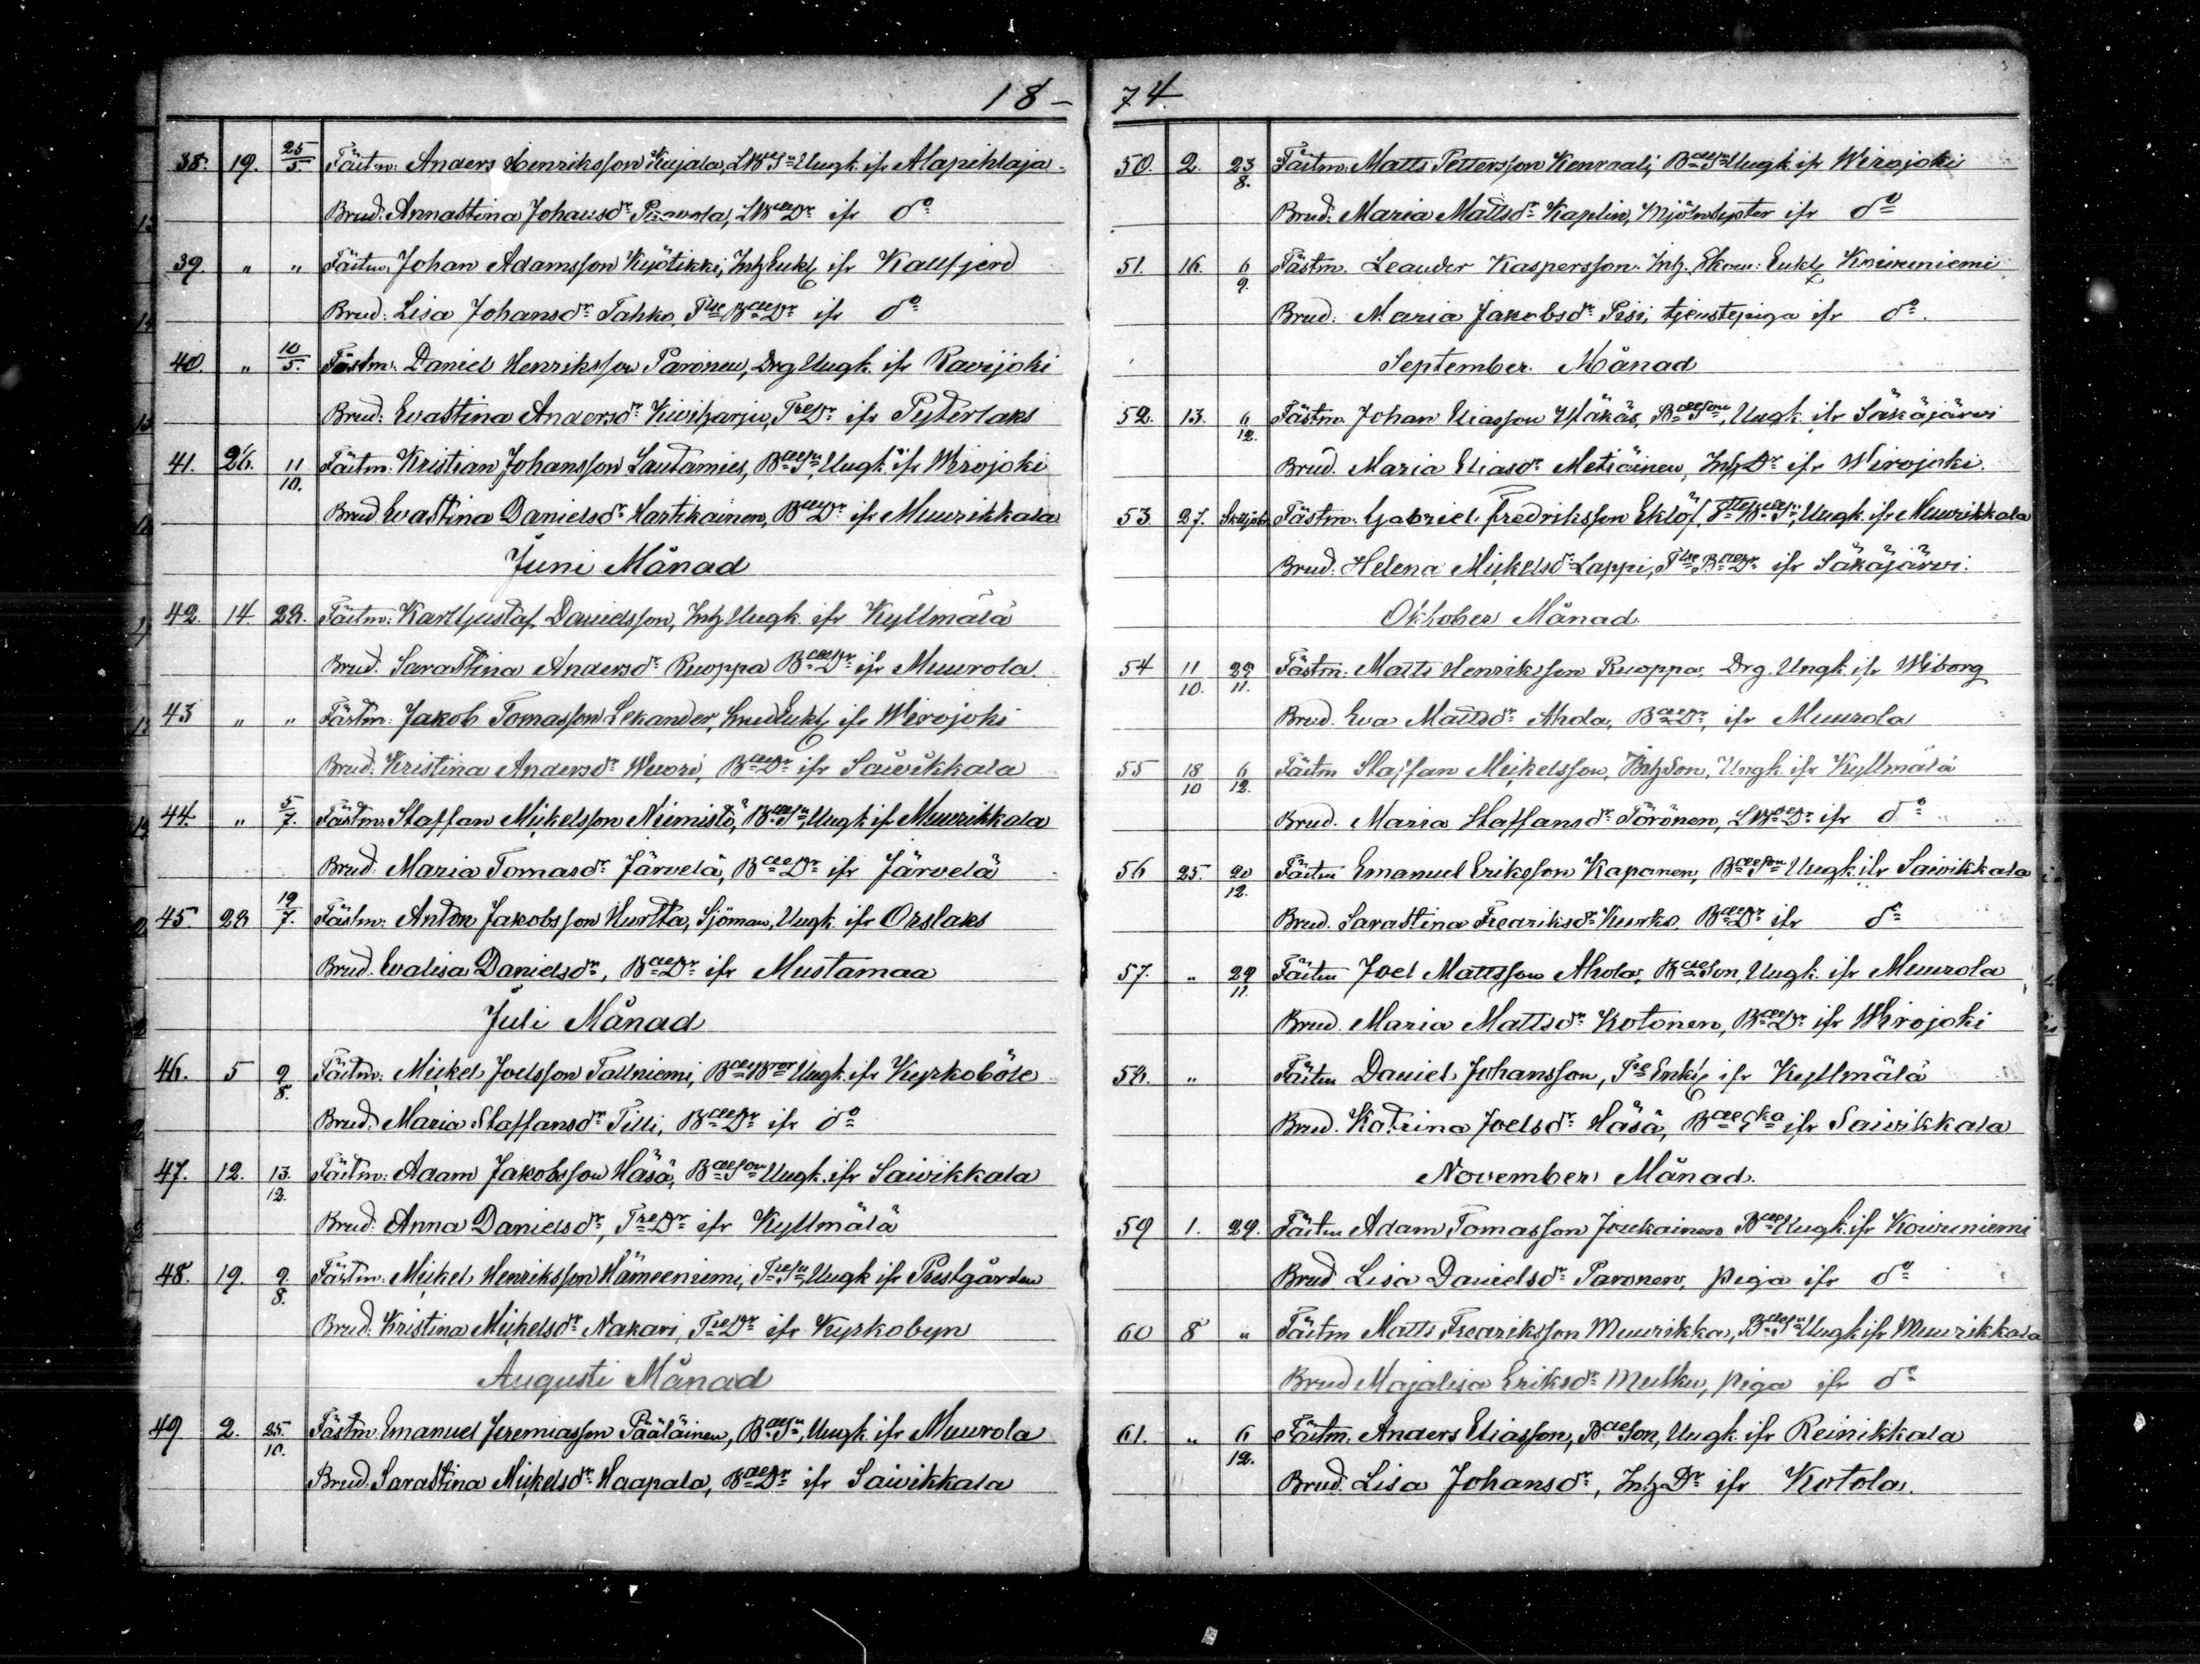 18-
38. 19. 25/5. Fästm: Anders Henriksson Kujala, LBdeSn Ungk. ifr Alapihlaja
Brud: Annastina Johansdr LBdeDr ifr do
39. " " Fästm: Johan Adamsson Kyötikki, Inh Enkl ifr Kallfjerd
Brud: Lisa Johansdr Tahko, Tlle BdeDr ifr do
40. " 10/5. Fästm: Daniel Henriksson Paronen, Drg Ungk. ifr Ravijoki
Brud: Evastina Andersdr Kiviharju, TreDr ifr Pyterlaks
41. 26. 11/10. Fästm: Kristian Johansson Lautamies, BdeSn, Ungk. ifr Wirojoki
Brud Evastina Danielsdr Hartikainen, BdeDr ifr Muurikkala
Juni Månad
42. 14 28. Fästm: Karl Gustaf Danielsson, Inh Ungk. ifr Kyllmälä
Brud. Sarastina Andersdr Ruoppa BdeDr ifr Muurola.
43 " " Fästm: Jakob Tomasson Lekander, Enkl ifr Wirojoki
Brud: Kristina Andersdr Wuori, BdeDr ifr Saivikkala
44. " 5/7. Fästm: Staffan Mickelsson Niemistö, BdeSn, Ungk ifr Muurikkala
Brud Maria Tomasdr Järvelä, BdeDr ifr Järvelä
45. 28 12/7. Fästm: Anton Jakobsson Hurtta, Sjöman, Ungk. ifr Orslaks
Brud. Evalisa Danielsdr, BdeDr ifr Mustamaa
Juli Månad
46. 5 9/8. Fästm: Mickel Joelsson Tallniemi, BdeBror Ungk. ifr Kyrkoböle
Brud: Maria Staffansdr Tilli, BdeDr ifr do
47. 12. 13/12. Fästm: Adam Jakobsson Häsä, BdeSon Ungk. ifr Saivikkala
Brud: Anna Danielsdr, TreDr ifr Kyllmälä
48. 19. 9/8. Fästm: Mickel Henriksson Hämeenniemi, TreSn, Ungk ifr Prestgården
Brud: Kristina Mickelsdr Nakari, TreDr ifr Kyrkobyn
Augusti Månad
49 2. 25/10. Fästm. Emanuel Jeremiasson Pääläinen, BdeSn, Ungk. ifr Muurola
Brud: Sarastina Mickelsdr Haapala, BdeDr ifr Saivikkala
74
50. 2. 23/8. Fästm: Matts Pettersson Kenraali, BdeSn Ungk. ifr Wirojoki
Brud: Maria Mattsdr Kaplin, ifr do
51. 16. 6/9. Fästm. Leander Kaspersson. Inh. Skom: Enkl Koivuniemi
Brud: Maria Jakobsdr Pesi, tjenstepiga ifr do.
September Månad
52. 13. 6/12. Fästm Johan Eliasson BdeSon, Ungk. ifr Säkäjärvi
Brud. Maria Eliasdr Metsäinen, InhDr ifr Wirojoki.
53 27. Fästm: Gabriel Fredriksson Eklöf, Tlle BdeSn, Ungk. ifr Muurikkala
Brud: Helena Mickelsdr Lappi, Tlle BdeDr ifr Säkäjärvi.
Oktober Månad.
54 11/10. 29/11. Fästm: Matts Henriksson Ruoppa, Drg. Ungk. ifr Wiborg
Brud. Eva Mattsdr Ahola, BdeDr, ifr Muurola
55 18/10 6/12. Fästm Staffan Mickelsson, InhSon, Ungk. ifr Kyllmälä
Brud. Maria Staffansdr Törönen, LBdeDr ifr do
56 25. 20/12. Fästm Emanuel Eriksson Kaponen, BdeSon Ungk. ifr Saivikkala
Brud. Sarastina Fredriksdr Kurko, BdeDr ifr do
57. " 29/11. Fästm Joel Mattsson Ahola, BdeSon, Ungk. ifr Muurola
Brud. Maria Mattsdr Kotonen, BdeDr ifr Wirojoki
58. " Fästm Daniel Johansson, Tre Enkl ifr Kyllmälä
Brud. Katrina Joelsdr Häsä, BdeEka ifr Saivikkala
November Månad.
59 1. 29. Fästm Adam Tomasson Joukainen Bde Ungk. ifr Koivuniemi
Brud Lisa Danielsdr Paronen, piga ifr do
60 8 " Fästm Matts Fredriksson Muurikka, BdeSn Ungk ifr Muurikkala
Brud Majalisa Eriksdr Mulku, piga ifr do
61. " 6/12. Fästm. Anders Eliasson, BdeSon, Ungk. ifr Reinikkala
Brud: Lisa Johansdr, InhDr ifr Kotola.